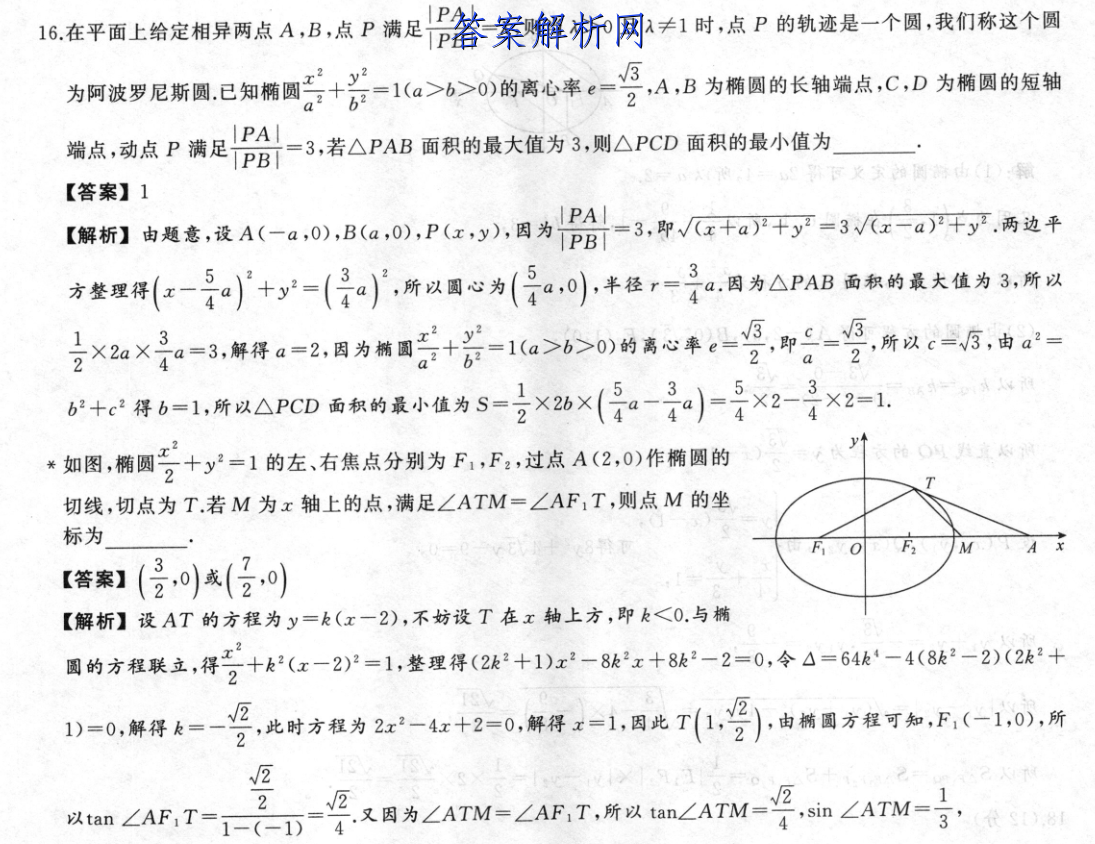 16.在平面上给定相异两点 A,B,点 P 满足|PA|/|PB|=λ,则当λ>0 且λ≠1 时,点 P 的轨迹是一个圆,我们称这个圆
答案解析网
为阿波罗尼斯圆.已知椭圆x²/a²+y²/b²=1(a>b>0)的离心率 e=√3/2,A,B 为椭圆的长轴端点,C,D 为椭圆的短轴
端点,动点 P 满足|PA|/|PB|=3,若△PAB 面积的最大值为 3,则△PCD 面积的最小值为________.
【答案】1
【解析】由题意,设 A(-a,0),B(a,0),P(x,y),因为|PA|/|PB|=3,即√((x+a)²+y²)=3√((x-a)²+y²).两边平
方整理得(x-5/4a)²+y²=(3/4a)²,所以圆心为(5/4a,0),半径 r=3/4a.因为△PAB 面积的最大值为 3,所以
1/2×2a×3/4a=3,解得 a=2,因为椭圆x²/a²+y²/b²=1(a>b>0)的离心率 e=√3/2,即c/a=√3/2,所以 c=√3,由 a²=
b²+c² 得 b=1,所以△PCD 面积的最小值为 S=1/2×2b×(5/4a-3/4a)=5/4×2-3/4×2=1.
*如图,椭圆x²/2+y²=1 的左、右焦点分别为 F₁,F₂,过点 A(2,0)作椭圆的
切线,切点为 T.若 M 为 x 轴上的点,满足∠ATM=∠AF₁T,则点 M 的坐
标为________.
y
T
F₁ O F₂ M A x
【答案】(3/2,0)或(7/2,0)
【解析】设 AT 的方程为 y=k(x-2),不妨设 T 在 x 轴上方,即 k<0.与椭
圆的方程联立,得x²/2+k²(x-2)²=1,整理得(2k²+1)x²-8k²x+8k²-2=0,令 Δ=64k⁴-4(8k²-2)(2k²+
1)=0,解得 k=-√2/2,此时方程为 2x²-4x+2=0,解得 x=1,因此 T(1,√2/2),由椭圆方程可知,F₁(-1,0),所
以 tan ∠AF₁T=(√2/2)/(1-(-1))=√2/4.又因为∠ATM=∠AF₁T,所以 tan∠ATM=√2/4,sin ∠ATM=1/3,